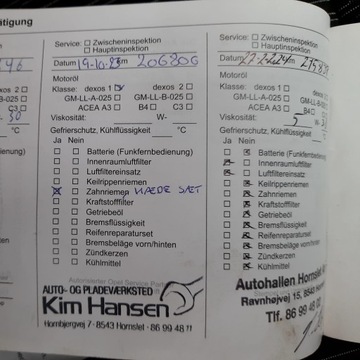 tätigung
Service: Zwischeninspektion
Hauptinspektion
Datum 19-10-23 km 206806
Motoröl
Klasse: dexos 1 dexos 2
GM-LL-A-025 GM-LL-B-025
ACEA A3 B4 C3
Viskosität: W-
Gefrierschutz, Kühlflüssigkeit °C
Ja Nein
Batterie (Funkfernbedienung)
Innenraumluftfilter
Luftfiltereinsatz
Keilrippenriemen
Zahnriemen
Kraftstofffilter
Getriebeöl
Bremsflüssigkeit
Reifenreparaturset
Bremsbeläge vorn/hinten
Zündkerzen
Kühlmittel
AUTO- OG PLADEVÆRKSTED
Kim Hansen
Hornbjergvej 7 · 8543 Hornslet · 86 99 48 11
Service: Zwischeninspektion
Hauptinspektion
Datum km
Motoröl
Klasse: dexos 1 dexos 2
GM-LL-A-025
ACEA A3 B4
Viskosität: W-
Gefrierschutz, Kühlflüssigkeit
Ja Nein
Batterie (Funkfernbedienung)
Innenraumluftfilter
Luftfiltereinsatz
Keilrippenriemen
Zahnriemen
Kraftstofffilter
Getriebeöl
Bremsflüssigkeit
Reifenreparaturset
Bremsbeläge vorn/hinten
Zündkerzen
Kühlmittel
Autohallen Hornslet
Ravnhøjvej 15, 8543
Tlf. 86 99 48